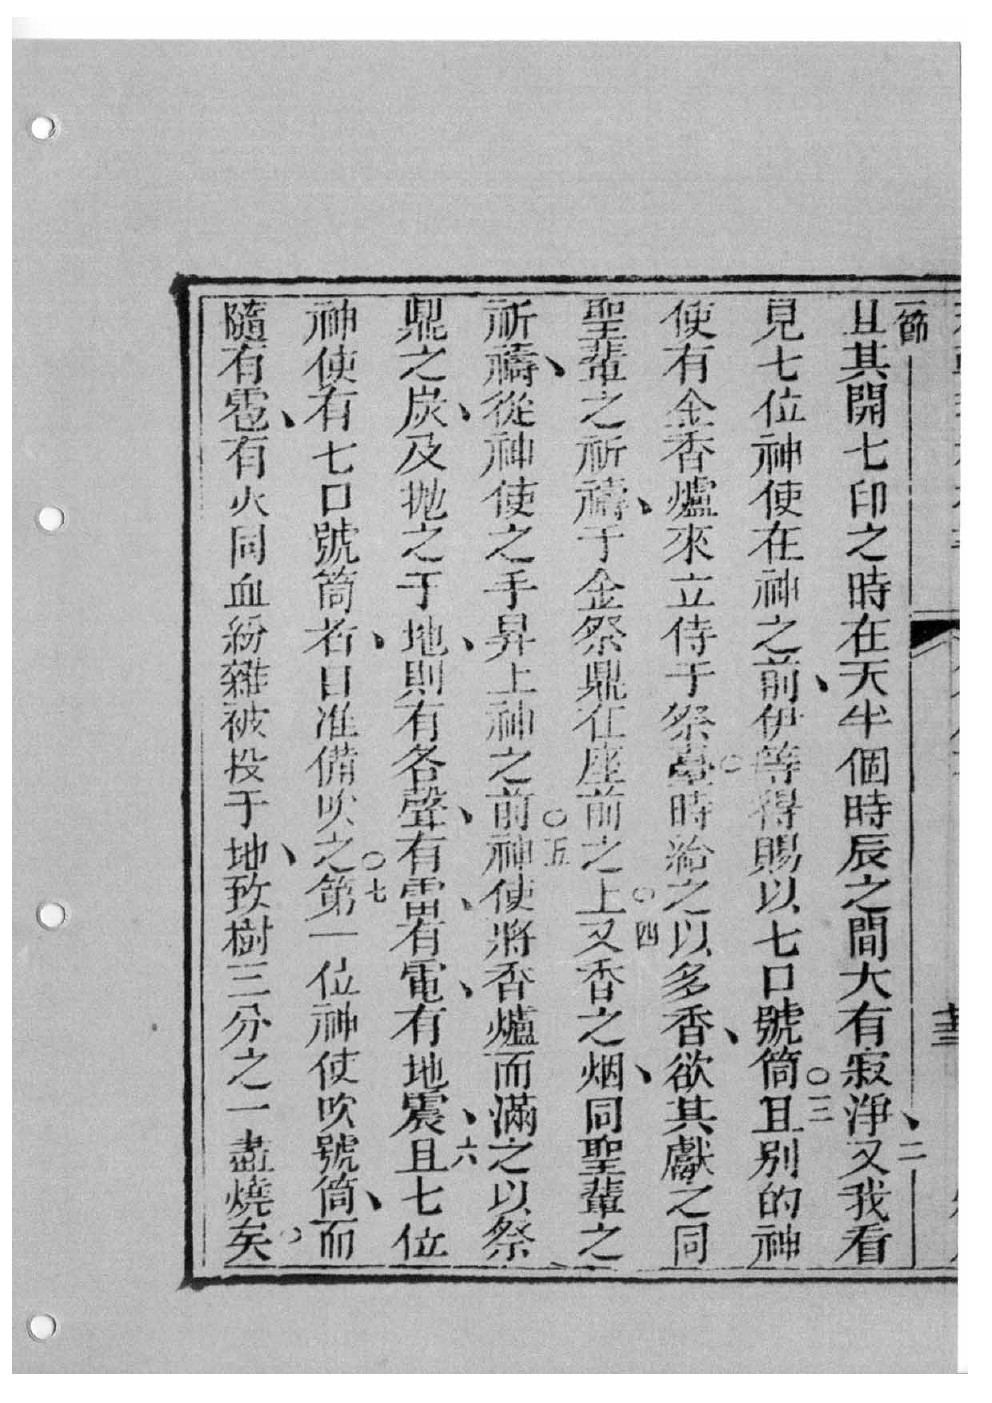 一節
且其開七印之時在天半個時辰之間大有寂淨、二又我看
見七位神使在神之前、伊等得賜以七口號筒○三且別的神
使有金香爐來立侍于祭臺○時給之以多香、欲其獻之同
聖輩之祈禱、于金祭鼎在座前之上○四又香之烟、同聖輩之
祈禱、從神使之手昇上神之前○五神使將香爐而滿之以祭
鼎之炭、及拋之于地、則有各聲、有雷、有電、有地震、六且七位
神使有七口號筒者、自准備吹之○七第一位神使吹號筒、而
隨有雹、有火同血紛雜被投于地、致樹三分之一盡燒矣、